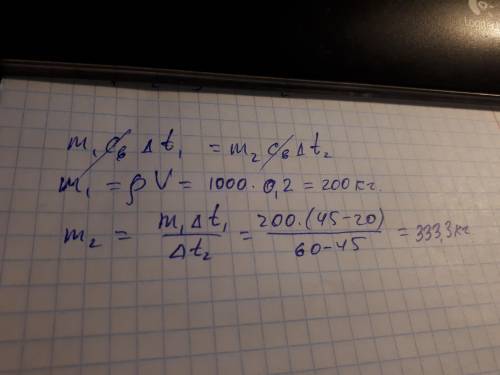 m₁ c_в Δt₁ = m₂ c_в Δt₂
m₁ = ρV = 1000 · 0,2 = 200 кг.
m₂ = m₁Δt₁/Δt₂ = 200·(45-20)/60-45 = 333,3 кг